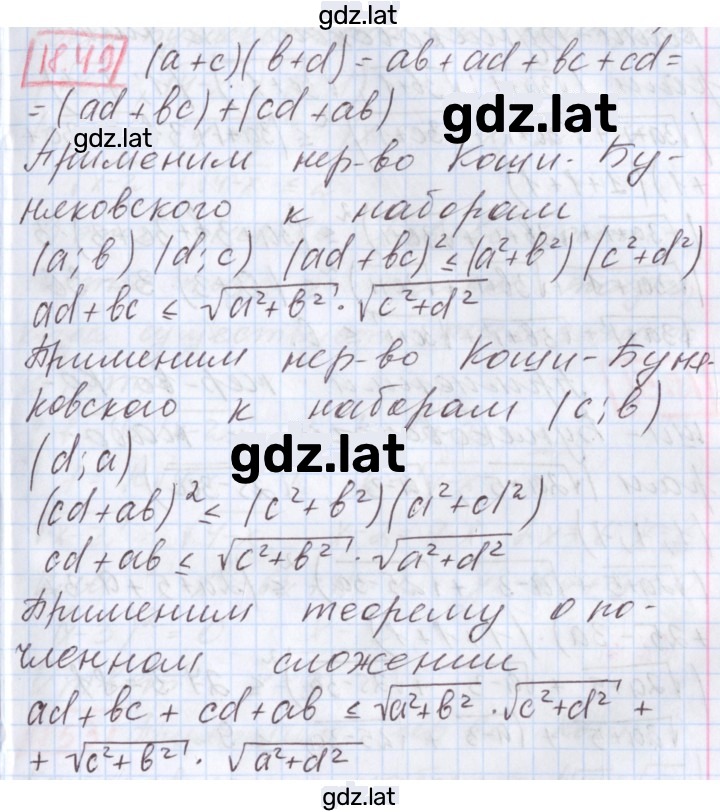 gdz.lat
18.49 (a+c)(b+d) = ab + ad + bc + cd =
= (ad + bc) + (cd + ab)
gdz.lat
gdz.lat
Применим нер-во Коши-Бу-
няковского к наборам
(a; b) (d; c) (ad + bc)² ≤ (a²+b²) (c²+d²)
ad + bc ≤ √a²+b² · √c²+d²
Применим нер-во Коши-Буня-
ковского к наборам (c; b)
(d; a)
gdz.lat
(cd + ab)² ≤ (c²+b²)(a²+d²)
cd + ab ≤ √c²+b² · √a²+d²
Применим теорему о по-
членном сложении
ad + bc + cd + ab ≤ √a²+b² · √c²+d² +
+ √c²+b² · √a²+d²
gdz.lat